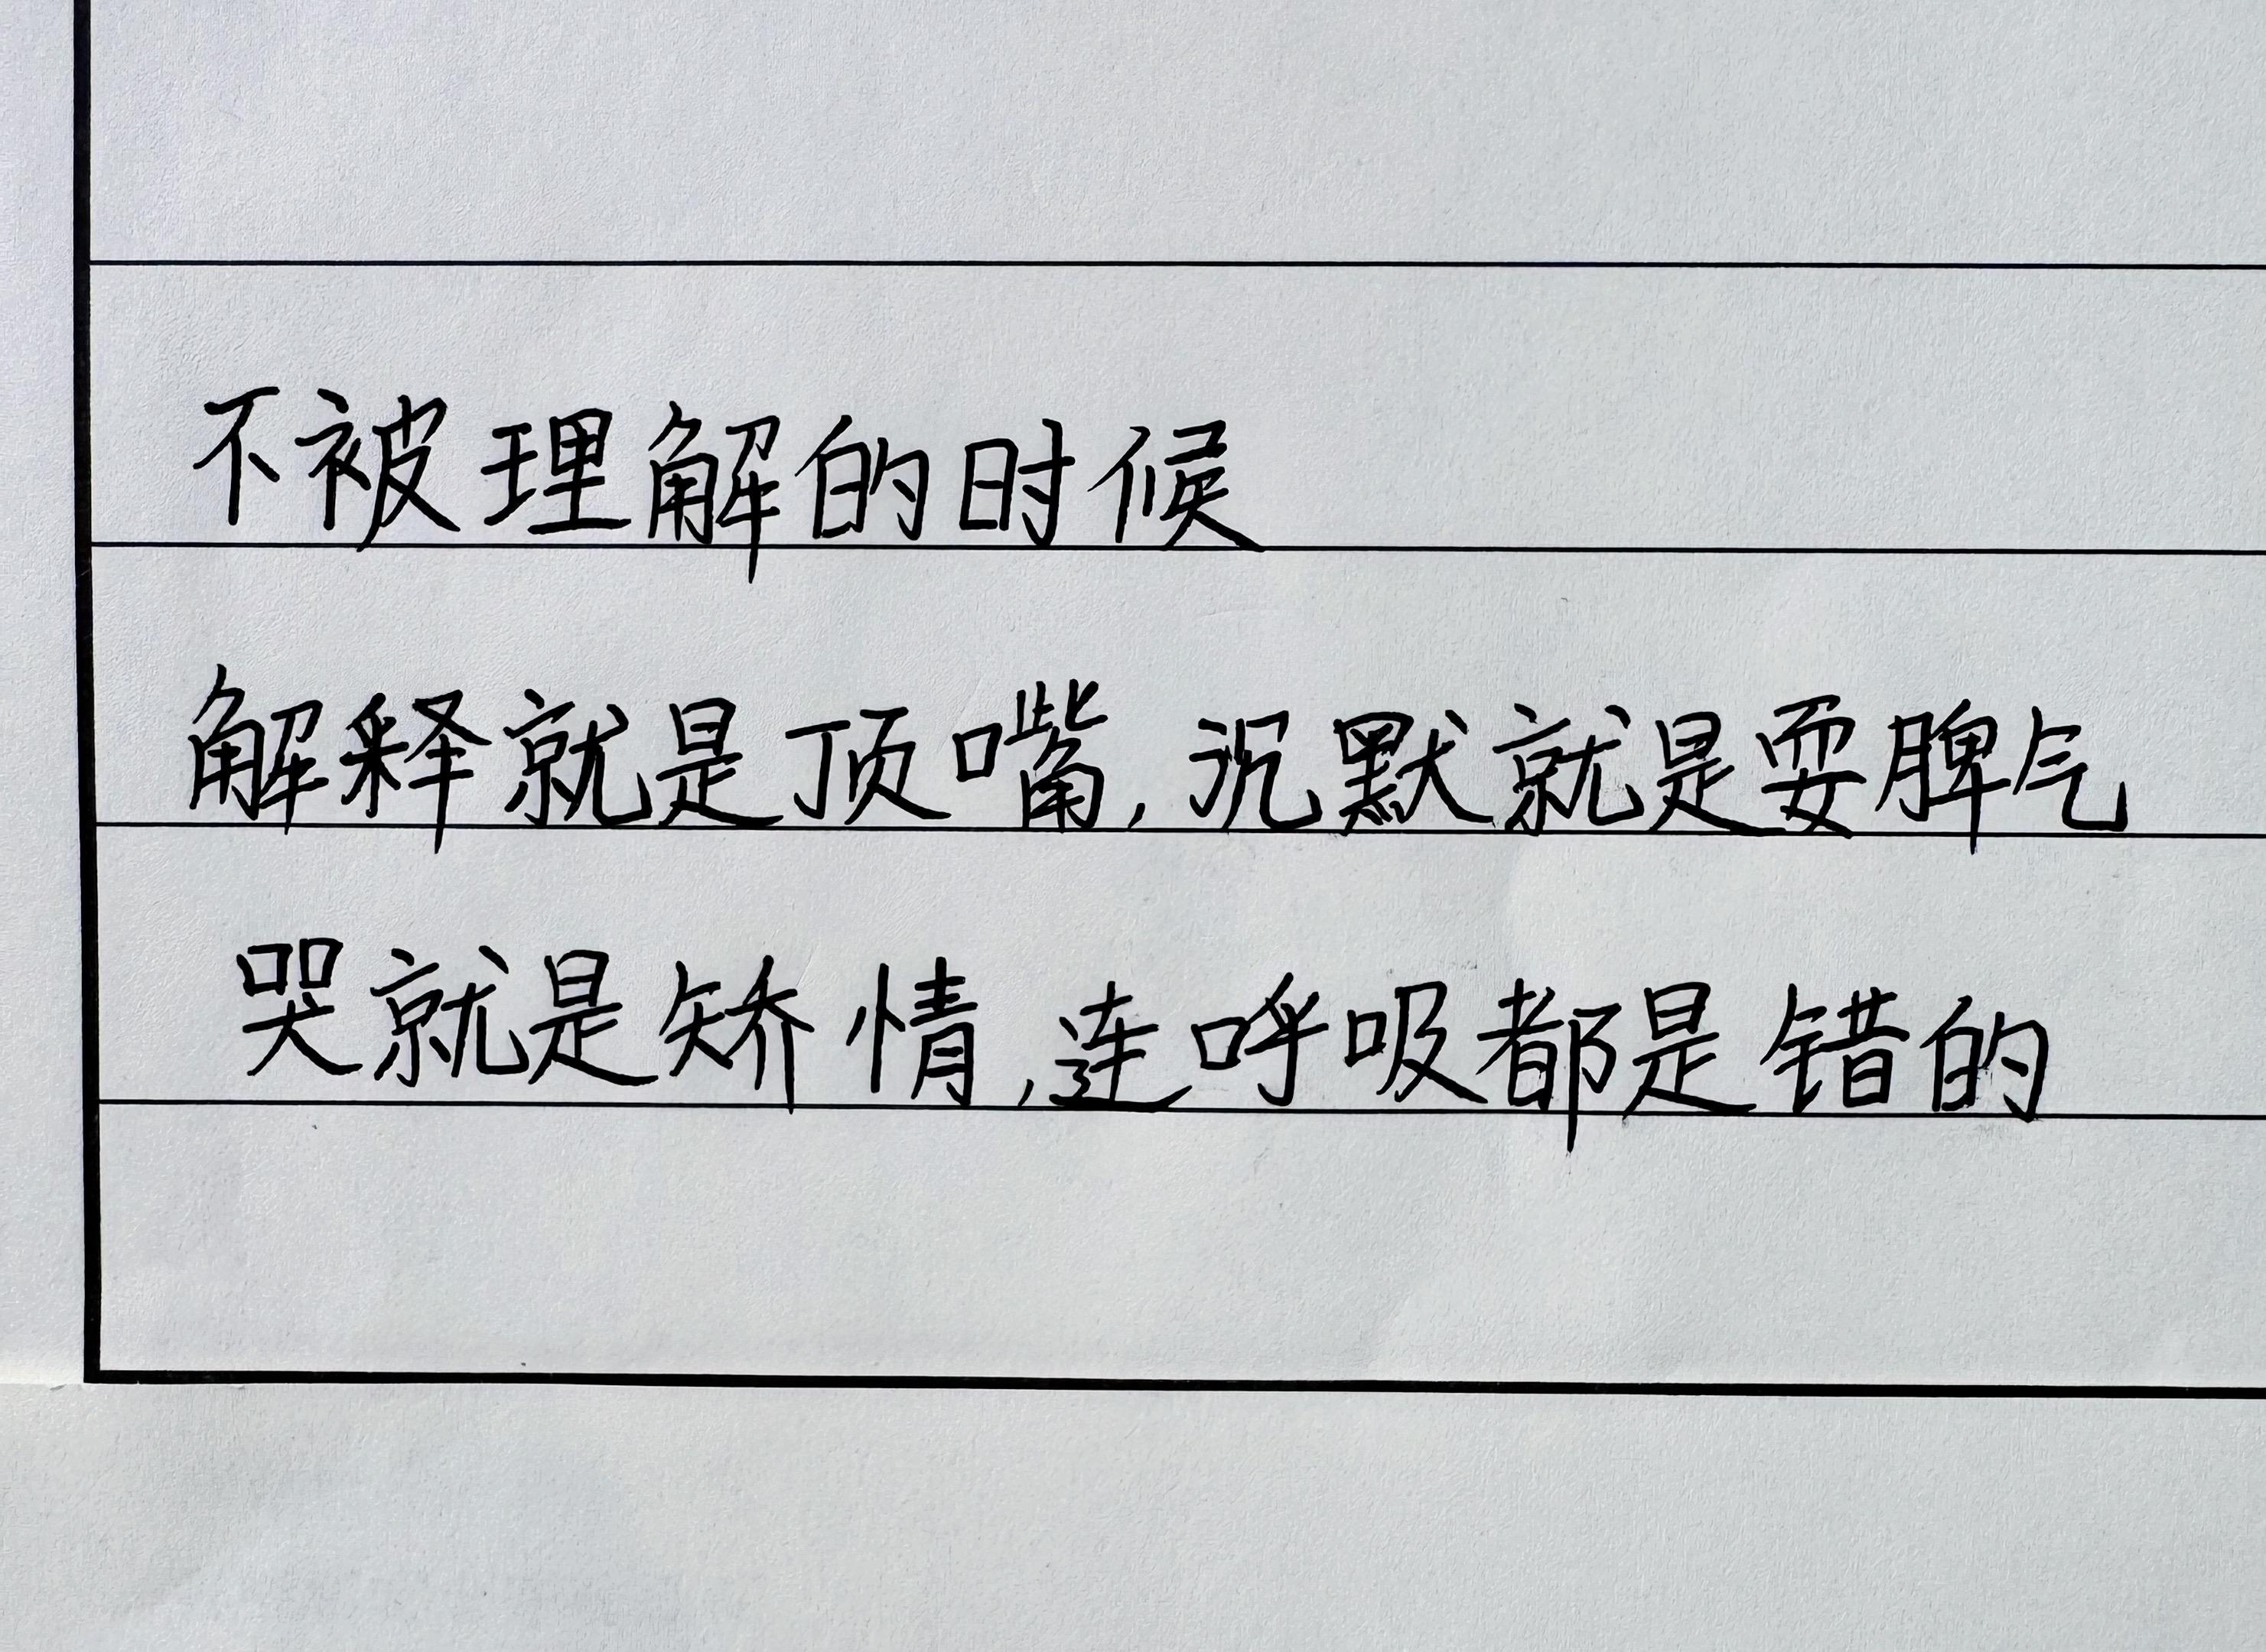 不被理解的时候
解释就是顶嘴,沉默就是耍脾气
哭就是矫情,连呼吸都是错的